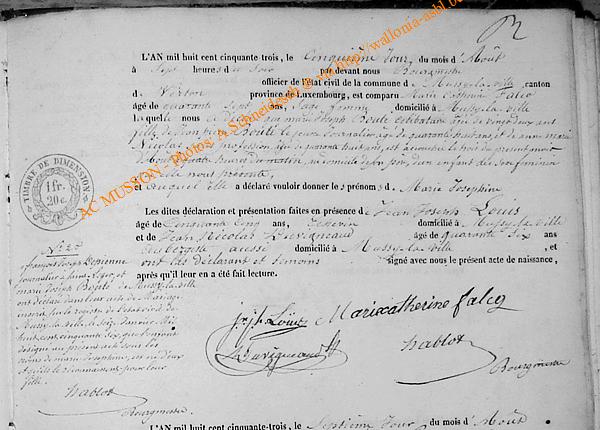 L'AN mil huit cent cinquante-trois, le Cinquième Jour, du mois d'Août
à Sept heures du Soir par devant nous Bourgmestre
officier de l'état civil de la commune d e Mussy-la-ville, canton
d e Virton province de Luxembourg, est comparu Marie Catherine Falcq
âgé de quarante Sept ans, Sage femme domicilié à Mussy-la-ville
la quelle nous a déclaré que marie Joseph Bouté Célibataire âgée de vingt deux ans
fille de Jean Pierre Bouté le jeune Journalier, âgé de quarante huit ans et de anne marie
Nicolas, Sans profession, âgée de quarante huit ans, est accouchée le trois du présent mois
heures du matin, au domicile de son père, d'un enfant du Sexe féminin
qu'elle nous présente,
et auquel elle a déclaré vouloir donner les prénoms de Marie Josephine
Les dites déclaration et présentation faites en présence de Jean Joseph Louis
âgé de Cinquante Cinq ans, domicilié à Mussy-la-ville
et de Jean Nicolas Duvigneaud âgé de quarante Six ans
domicilié à Mussy-la-ville, et
ont les déclarant et témoins signé avec nous le présent acte de naissance,
après qu'il leur en a été fait lecture.
TIMBRE DE DIMENSION
1fr.
20c.
françois Joseph Depienne
journalier à
marie Joseph Bouté de Mussy-la-ville
ont déclaré dans leur acte de Mariage
inscrit sur le registre de l'état civil de
Mussy-la-ville, le Seize Janvier Mil
huit cent cinquante six, que l'enfant
désigné au présent acte sous les
noms de marie Josephine, est né d'eux
et qu'ils le reconnaissent pour leur
fille.
hablot
Bourgmestre
Jn Jph Louis Marie catherine falcq
Duvigneaud hablot
Bourgmestre
L'AN mil huit cent cinquante-trois, le Septième Jour du mois d'Août
AC MUSSON - Photo A. Schneidesch @ via http://wallonia-asbl.be